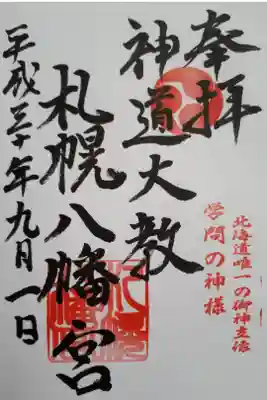 奉拝
北海道唯一の御神立法
学問の神様
神道大教
札幌八幡宮
平成三十年九月一日